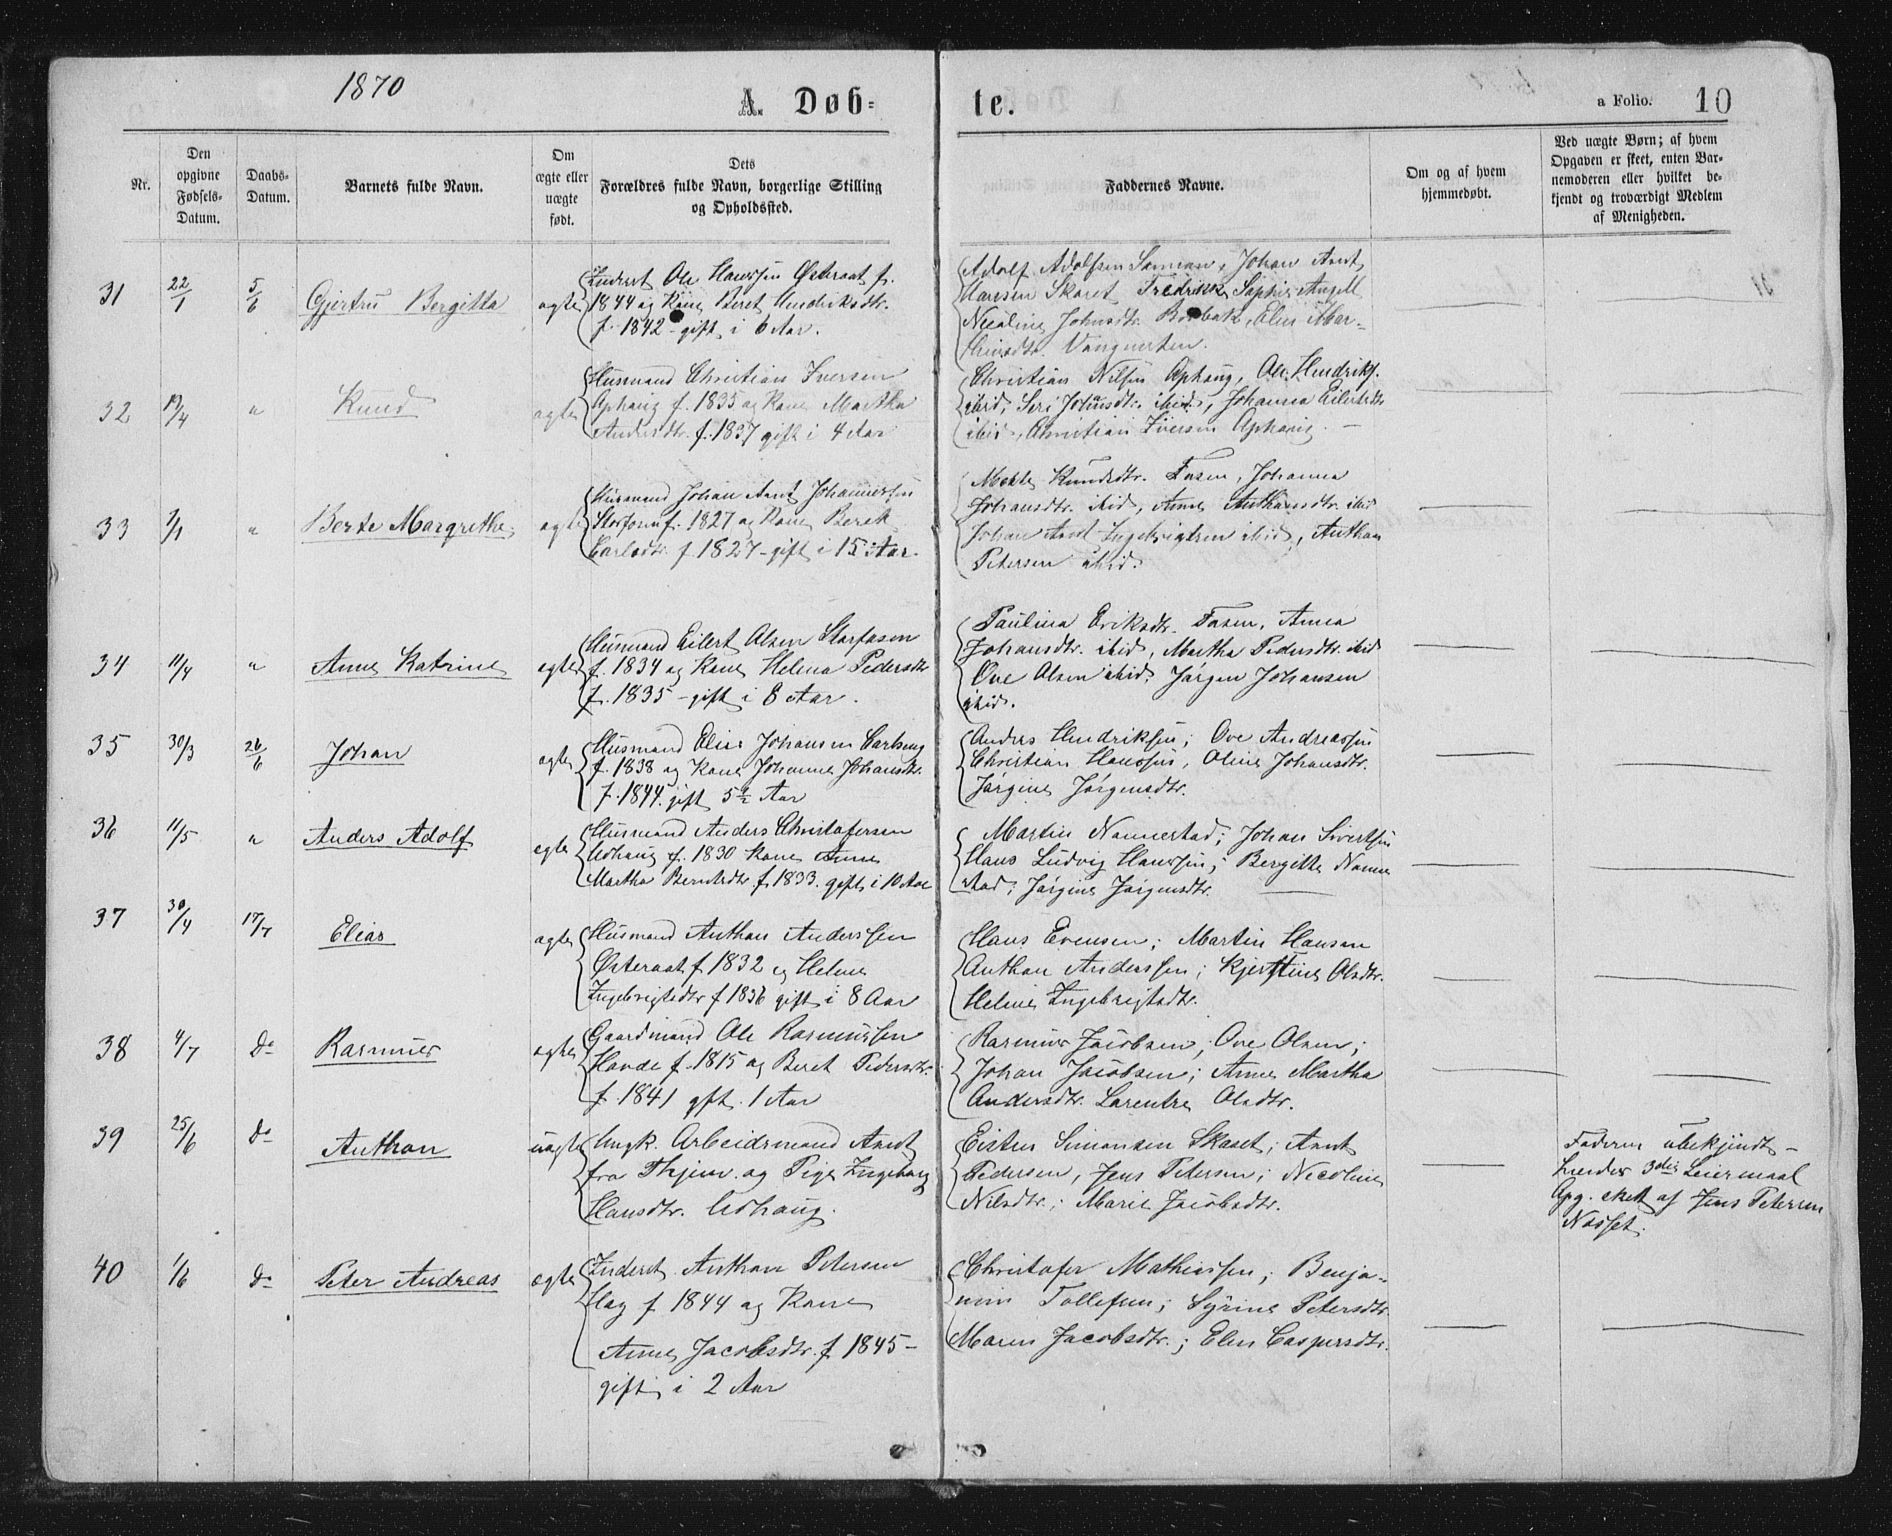 1870
A. Døb=
te.
a Folio. 10
Nr.
Den opgivne Fødsels-Datum.
Daabs-Datum.
Barnets fulde Navn.
Om ægte eller uægte født.
Dets Forældres fulde Navn, borgerlige Stilling og Opholdssted.
Faddernes Navne.
Om og af hvem hjemmedøbt.
Ved uægte Børn; af hvem Opgaven er skeet, enten Barnemoderen eller hvilket bekjendt og troværdigt Medlem af Menigheden.
31 22/1 5/6 Gjertru Bergitta ægte
Inderst Ole Hanssen Østeraat f.
1844 og Kone Beret Hendriksdtr.
f. 1842 - gift i 6 Aar.
Adolf Adolfsen, Johan Arnt
Hansen Skaret Fredrikke Sophie Angell
Nicoline Johnsdtr. Elen Mar=
32 19/4 " Knud ægte
Husmand Christian Iversen
Ophaug f. 1835 og Kone Martha
Andersdtr. f. 1837 gift i 4 Aar
Christian Nilsen Ophaug, Ole Hendriks.
ibid, Siri Johnsdtr. ibid, Johanna Eilertsdtr
ibid, Christian Iversen Ophaug. —
33 7/1 " Berte Margrethe ægte
Husmand Johan Arnt Johannessen
Storfosen f. 1827 og Kone Beret
Carlsdtr. f 1827 - gift i 15 Aar.
Mette Knudsdtr. Fosen, Johanna
Johansdtr. ibid, Anne Anthonsdtr. ibid
Johan Arnt Ingebrigtsen ibid, Anthon
Petersen ibid.
34 11/4 " Anne Katrine ægte
Husmand Eilert Olsen Storfosen
f. 1834 og Kone Helena Pedersdtr
f. 1835 - gift i 8 Aar.
Paulina Eriksdtr. Fosen, Anna
Johansdtr. ibid, Martha Pedersdtr. ibid
Ove Olsen ibid, Jørgen Johansen
ibid.
35 30/3 26/6 Johan ægte
Husmand Elias Johansen
f. 1838 og Kone Johanna Johansdtr.
f. 1844. gift 5 1/2 Aar
Anders Hendriksen; Ove Andreassen
Christian Hanssen, Oline Johansdtr.
Jørgine Jørgensdtr.
36 11/5 " Anders Adolf ægte
Husmand Anders Christofersen
Udhaug f. 1830 Kone Anne
Martha Berntsdtr f. 1833. gift i 10 Aar
Martin Nannestad; Johan Sivertsen
Hans Ludvig Hanssen; Bergitte Nanne
stad; Jørgine Jørgensdtr.
37 30/4 17/7 Elias ægte
Husmand Anthon Anderssen
Østeraat f 1832 og Helene
Ingebrigtsdtr f 1836 gift i 8 Aar
Hans Evensen; Martin Hansen
Anthon Anderssen; Kjerstine Olsdtr.
Helene Ingebrigtsdtr.
38 4/7 Do Rasmus ægte
Gaardmand Ole Rasmussen
Hovde f. 1815 og Beret Pedersdtr.
f. 1841 gft. 1 Aar
Rasmus Jacobsen; Ove Olsen;
Johan Jacobsen; Anne Martha
Andersdtr. Larentse Olsdtr.
39 25/6 Do Anthon uægte
Ungk. Arbeidsmand Arndt
fra Thjem og Pige Ingeborg
Hansdtr. Udhaug.
Eisten Simonsen Skaret; Arnt
Pedersen, Jens Petersen; Nicoline
Nilsdtr.; Marie Jacobsdtr.
Faderen ubekjendt -
hendes 3die Leiermaal
Opg. skett af Jens Petersen
Næsset.
40 1/6 Do Peter Andreas ægte
Inderst Anthon Petersen
f 1844 og Kone
Anne Jacobsdtr. f 1845 -
gift i 2 Aar
Christofer Mathiassen; Benja=
min Tollefsen; Syrine Petersdtr.
Maren Jacobsdtr.; Elen Caspersdtr.